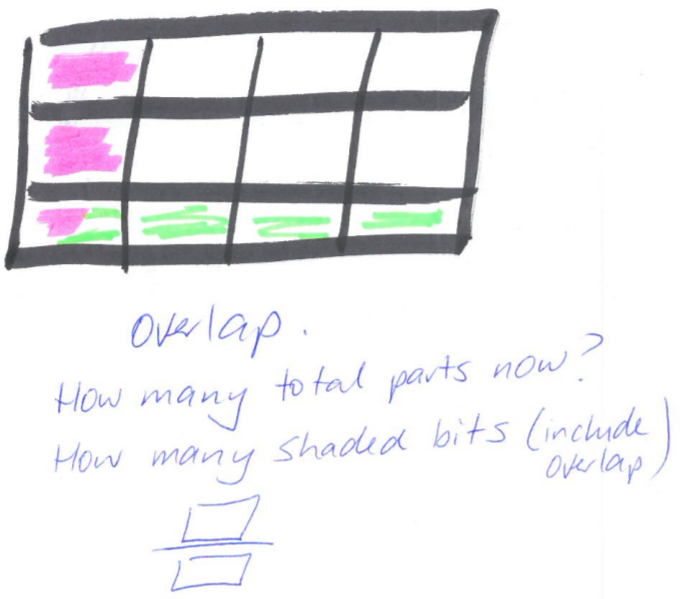 Overlap.
How many total parts now?
How many shaded bits (include
overlap)